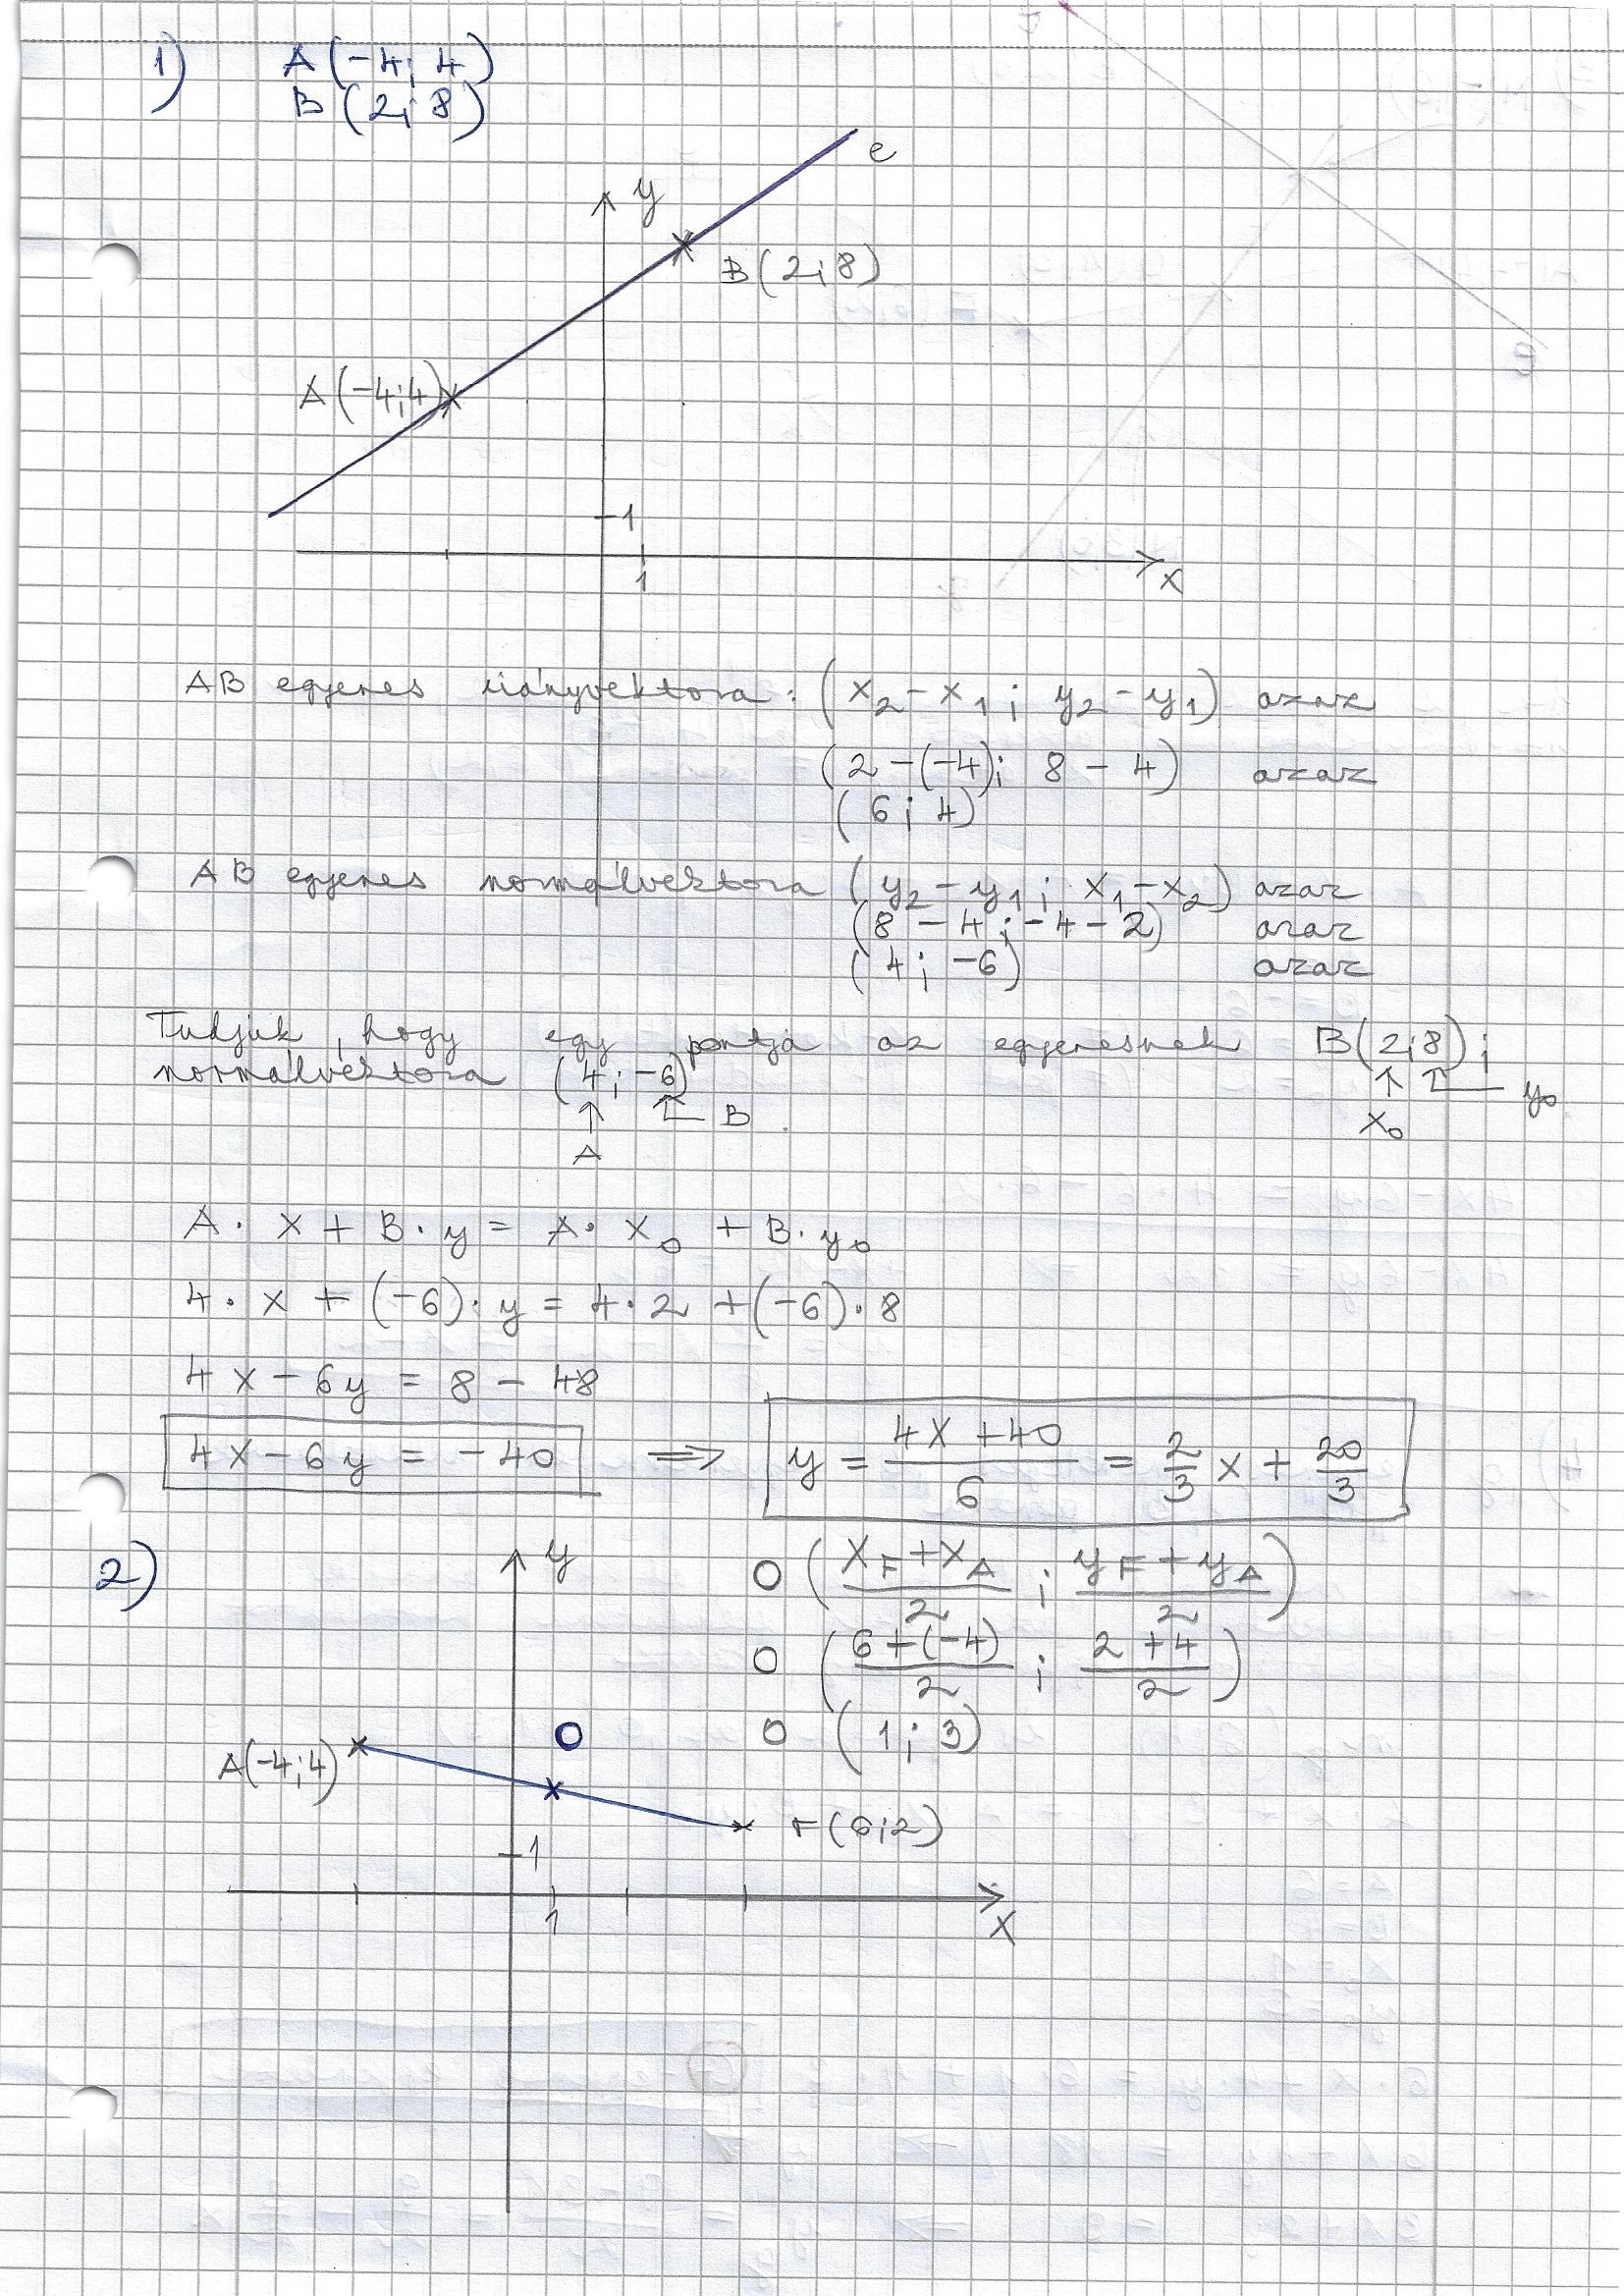 1) A(-4; 4)
B(2; 8)
e
y
B(2; 8)
A(-4; 4)
1
1
x
AB egyenes irányvektora: (x₂ - x₁; y₂ - y₁) azaz
(2 - (-4); 8 - 4) azaz
(6; 4)
AB egyenes normálvektora (y₂ - y₁; x₁ - x₂) azaz
(8 - 4; -4 - 2) azaz
(4; -6) azaz
Tudjuk, hogy egy pontja az egyenesnek B(2;8);
normálvektora (4; -6)
y₀
B.
x₀
A
A · x + B · y = A · x₀ + B · y₀
4 · x + (-6) · y = 4 · 2 + (-6) · 8
4x - 6y = 8 - 48
4x - 6y = -40 ⟹ y = (4x + 40)/6 = 2/3 x + 20/3
2)
y
O ((x_F + x_A)/2 ; (y_F + y_A)/2)
O ((6 + (-4))/2 ; (2 + 4)/2)
O (1; 3)
O
A(-4; 4)
F(6; 2)
1
1
x